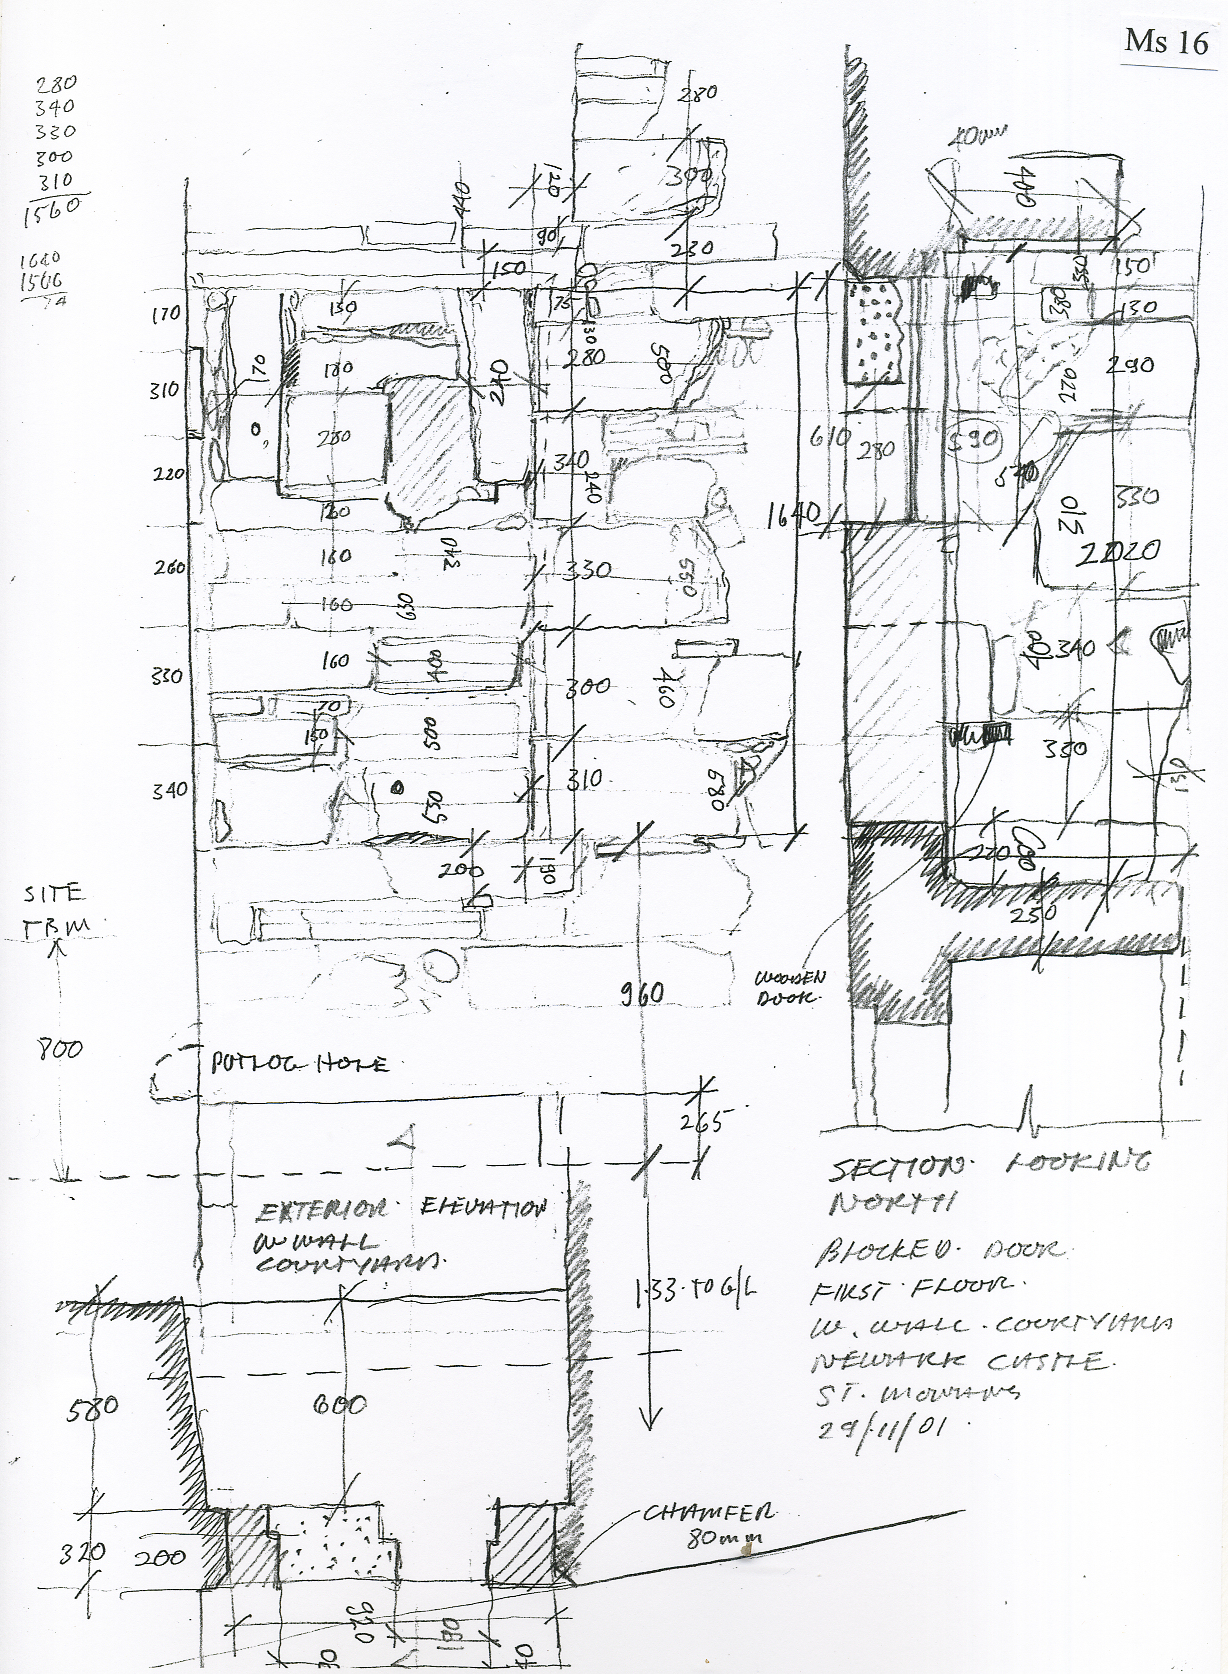 Ms 16
280
340
330
300
310
1560
1640
1560
280
300
230
120
440
90
150
75
40mm
400
150
130
290
170
310
220
260
330
340
130
170
180
280
120
240
130
280
340
240
330
300
310
500
550
460
680
160
340
160
630
160
400
70
150
500
530
200
190
1640
610
280
590
540
220
510
530
2020
400
340
330
130
220
600
250
SITE
TBM
800
960
WOODEN
DOOK
PUTLOG HOLE
265
EXTERIOR ELEVATION
W. WALL
COURTYARD.
1.33 TO G/L
SECTION LOOKING
NORTH
BLOCKED DOOR
FIRST FLOOR.
W. WALL COURTYARD
NEWARK CASTLE.
ST. MONANS
29/11/01.
580
600
CHAMFER
80mm
320
200
920
190